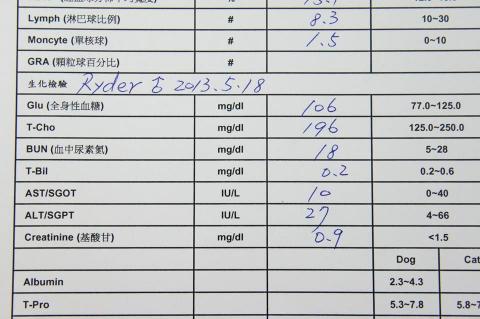 Lymph (淋巴球比例) # 8.3 10~30
Moncyte (單核球) # 1.5 0~10
GRA (顆粒球百分比) #
生化檢驗 Ryder 2013.5.18
Glu (全身性血糖) mg/dl 106 77.0~125.0
T-Cho mg/dl 196 125.0~250.0
BUN (血中尿素氮) mg/dl 18 5~28
T-Bil mg/dl 0.2 0.2~0.6
AST/SGOT IU/L 10 0~40
ALT/SGPT IU/L 27 4~66
Creatinine (基酸甘) mg/dl 0.9 <1.5
Dog Cat
Albumin 2.3~4.3
T-Pro 5.3~7.8